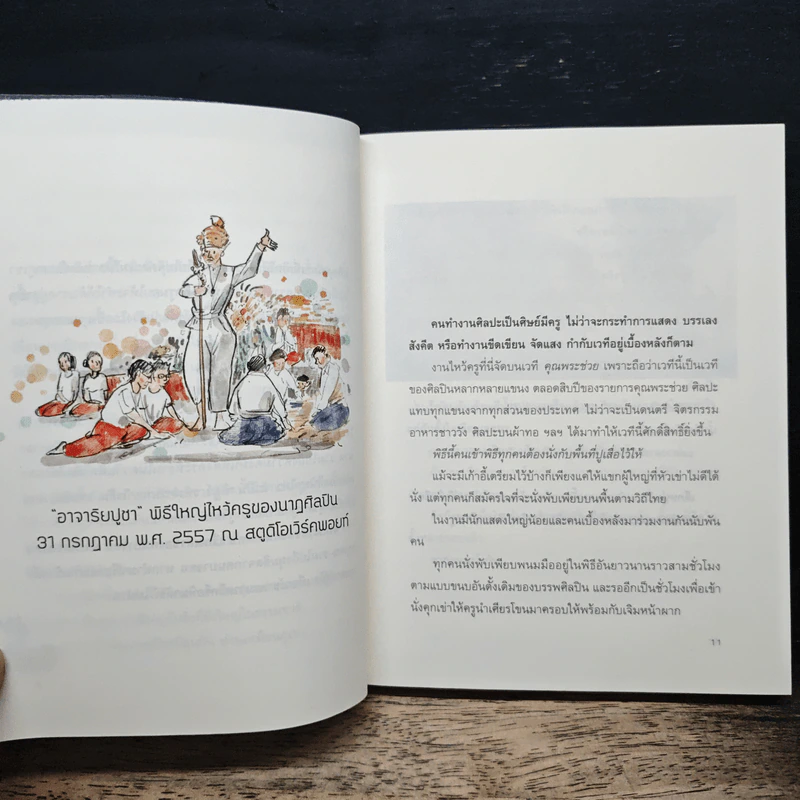 "อาจาริยปูชา" พิธีใหญ่ไหว้ครูของนาฏศิลปิน
31 กรกฎาคม พ.ศ. 2557 ณ สตูดิโอเวิร์คพอยท์
คนทำงานศิลปะเป็นศิษย์มีครู ไม่ว่าจะกระทำการแสดง บรรเลง
สังคีต หรือทำงานขีดเขียน จัดแสง กำกับเวทีอยู่เบื้องหลังก็ตาม
งานไหว้ครูที่นี่จัดบนเวที คุณพระช่วย เพราะถือว่าเวทีนี้เป็นเวที
ของศิลปินหลากหลายแขนง ตลอดสิบปีของรายการคุณพระช่วย ศิลปะ
แทบทุกแขนงจากทุกส่วนของประเทศ ไม่ว่าจะเป็นดนตรี จิตรกรรม
อาหารชาววัง ศิลปะบนผ้าทอ ฯลฯ ได้มาทำให้เวทีนี้ศักดิ์สิทธิ์ยิ่งขึ้น
พิธีนี้คนเข้าพิธีทุกคนต้องนั่งกับพื้นที่ปูเสื่อไว้ให้
แม้จะมีเก้าอี้เตรียมไว้บ้างก็เพียงแค่ให้แขกผู้ใหญ่ที่หัวเข่าไม่ดีได้
นั่ง แต่ทุกคนก็สมัครใจที่จะนั่งพับเพียบบนพื้นตามวิถีไทย
ในงานมีนักแสดงใหญ่น้อยและคนเบื้องหลังมาร่วมงานกันนับพัน
คน
ทุกคนนั่งพับเพียบพนมมืออยู่ในพิธีอันยาวนานราวสามชั่วโมง
ตามแบบขนบอันดั้งเดิมของบรรพศิลปิน และรออีกเป็นชั่วโมงเพื่อเข้า
นั่งคุกเข่าให้ครูนำเศียรโขนมาครอบให้พร้อมกับเจิมหน้าผาก
11